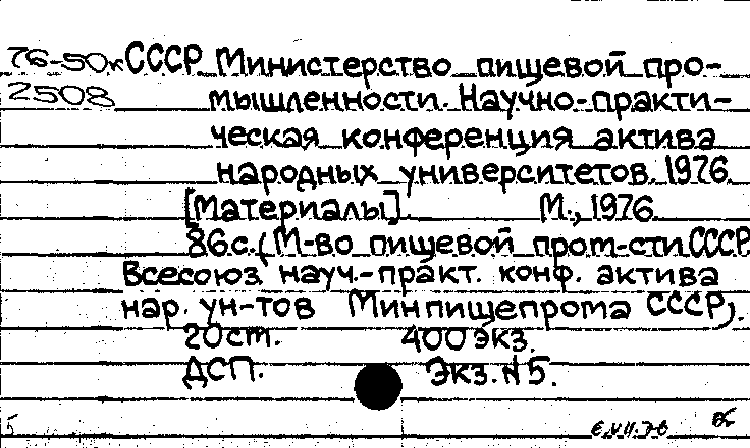 76-50к СССР Министерство пищевой про-
2508 мышленности. Научно-практи-
ческая конференция актива
народных университетов. 1976.
[Материалы]. М., 1976.
86 с. (М-во пищевой пром-сти СССР
Всесоюз. науч.-практ. конф. актива
нар. ун-тов Минпищепрома СССР).
20 ст. 400 экз.
ДСП. Экз. N 5.
6.VII.76